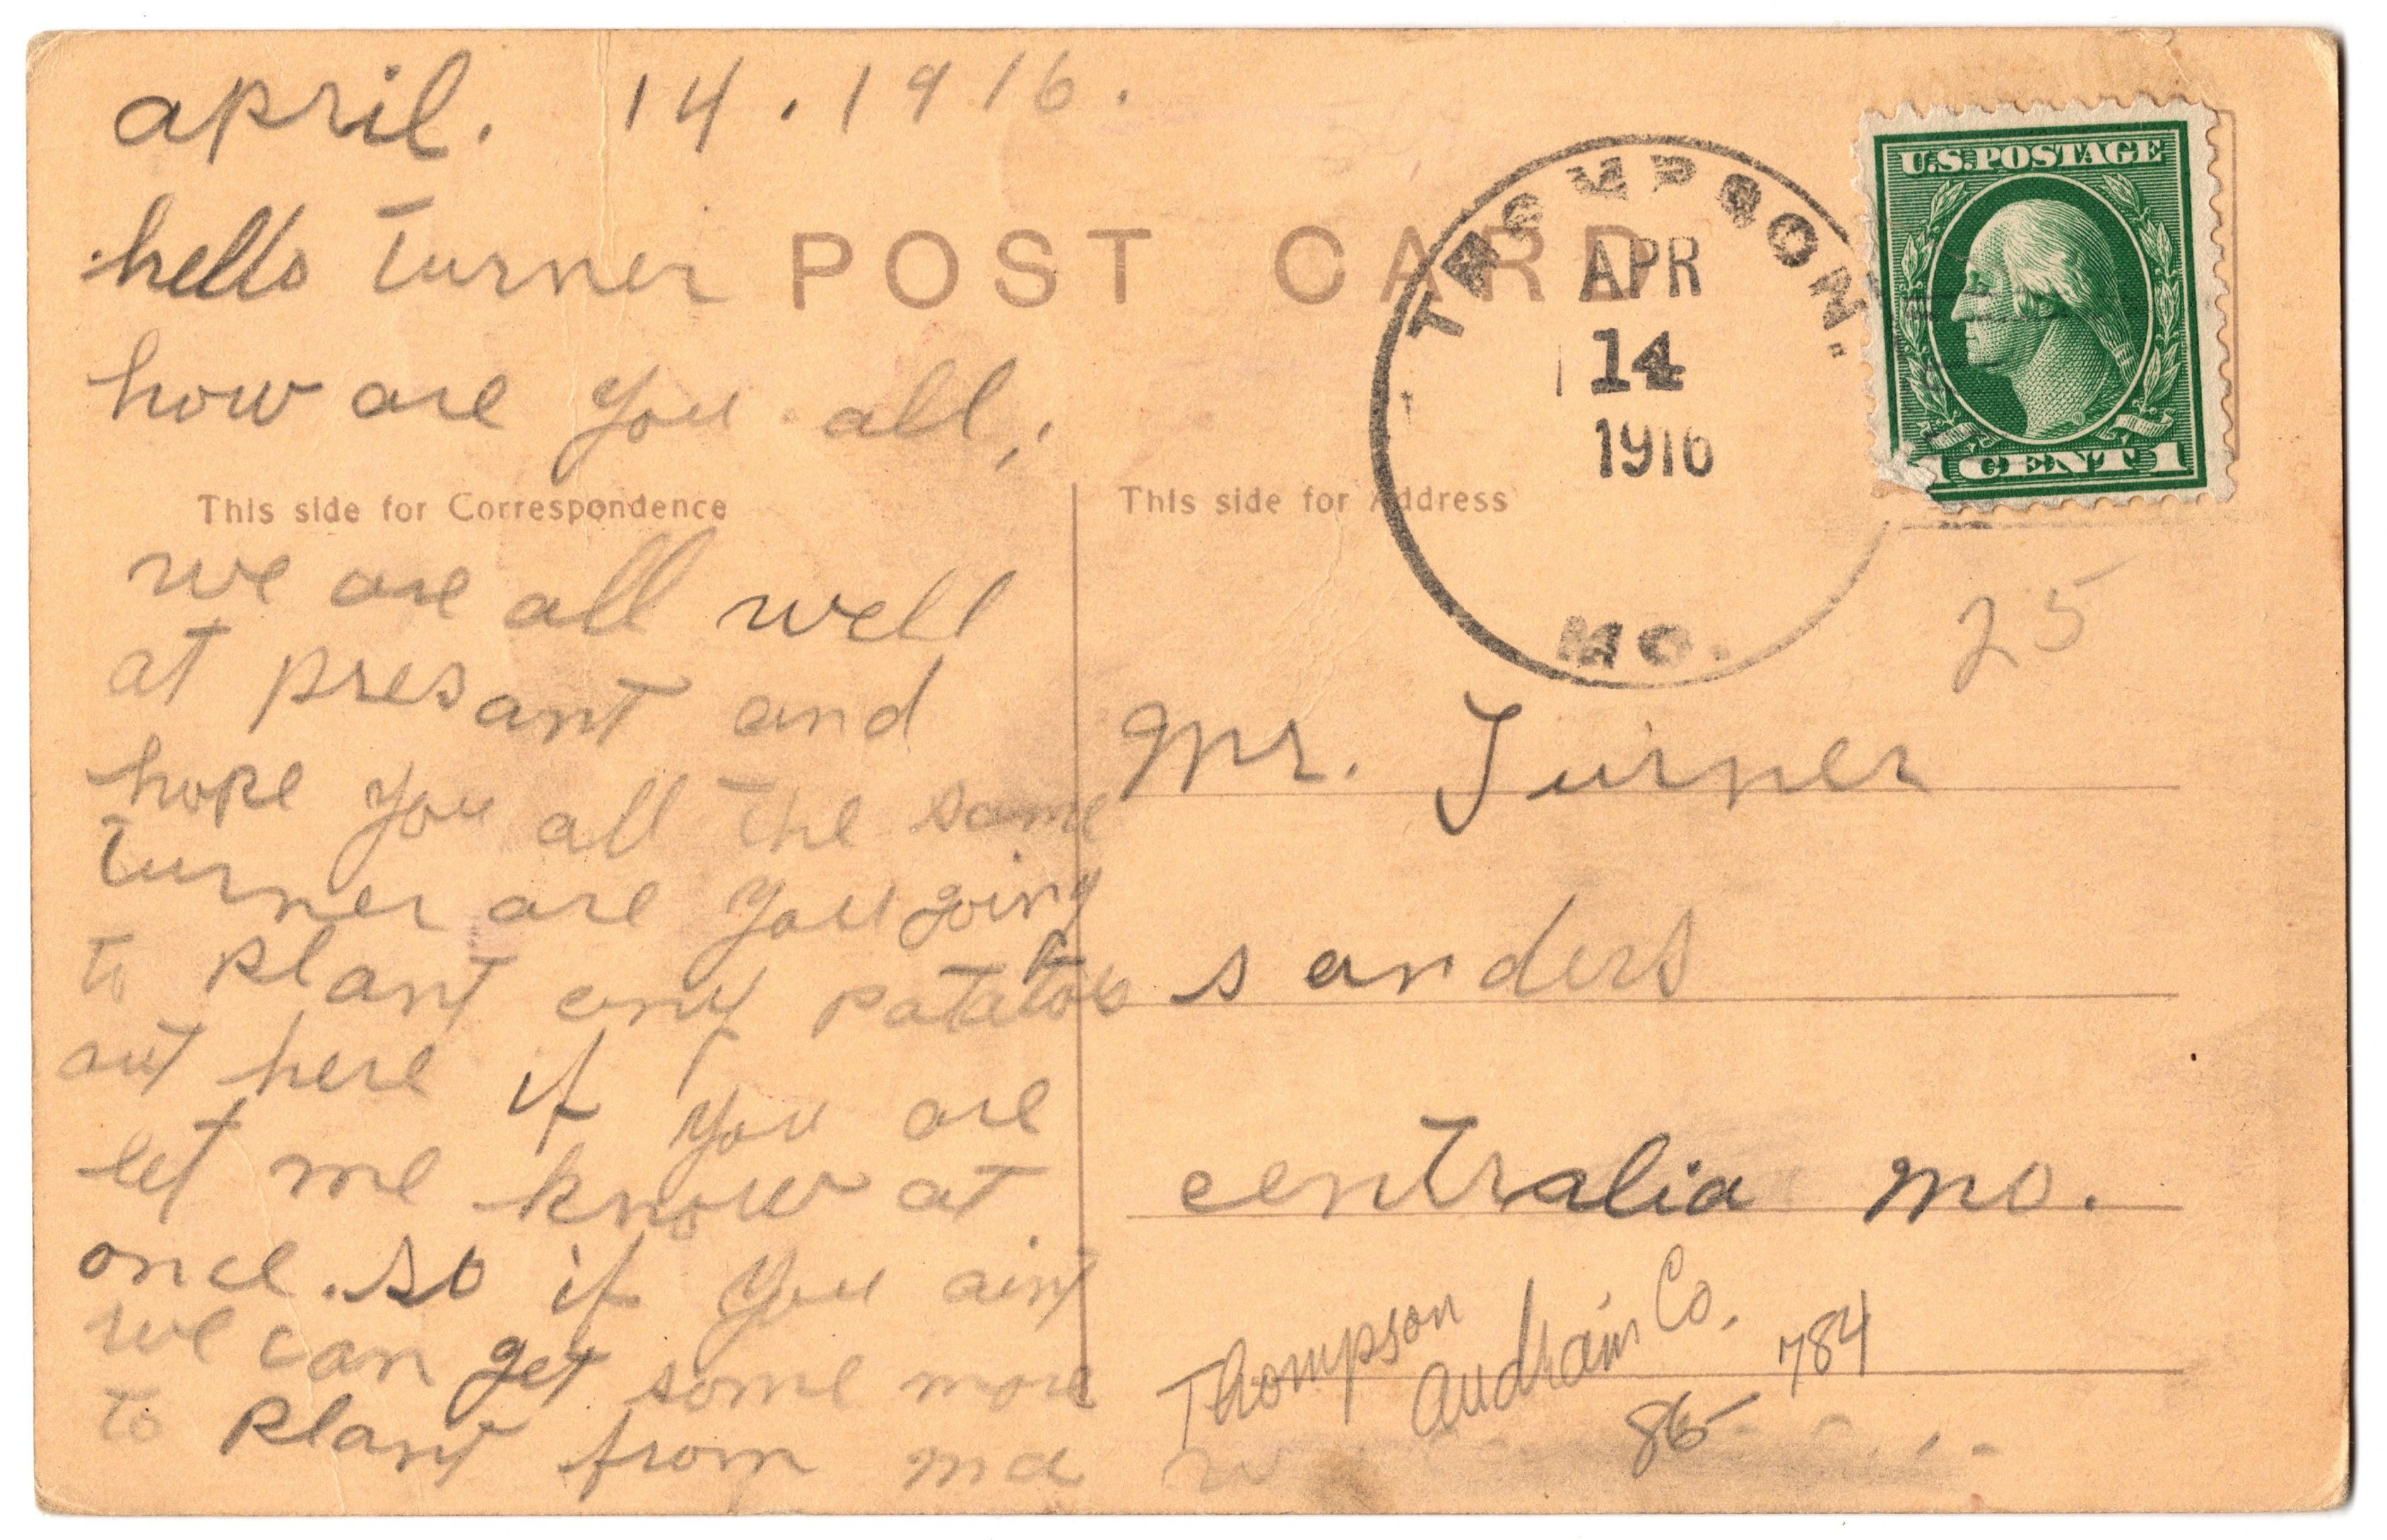 april. 14. 1916.
hello turner
how are you all,.
we are all well
at presant and
hope you all the same
turner are you going
to plant any patatos
out here if you are
let me know at
once. so if you aint
we can get some more
to plant from ma
POST CARD
This side for Correspondence
This side for Address
THOMPSON.
APR
14
1916
MO.
U.S. POSTAGE
1 CENT 1
25
Mr. Turner
sanders
centralia mo.
Thompson
Audrain Co.
784